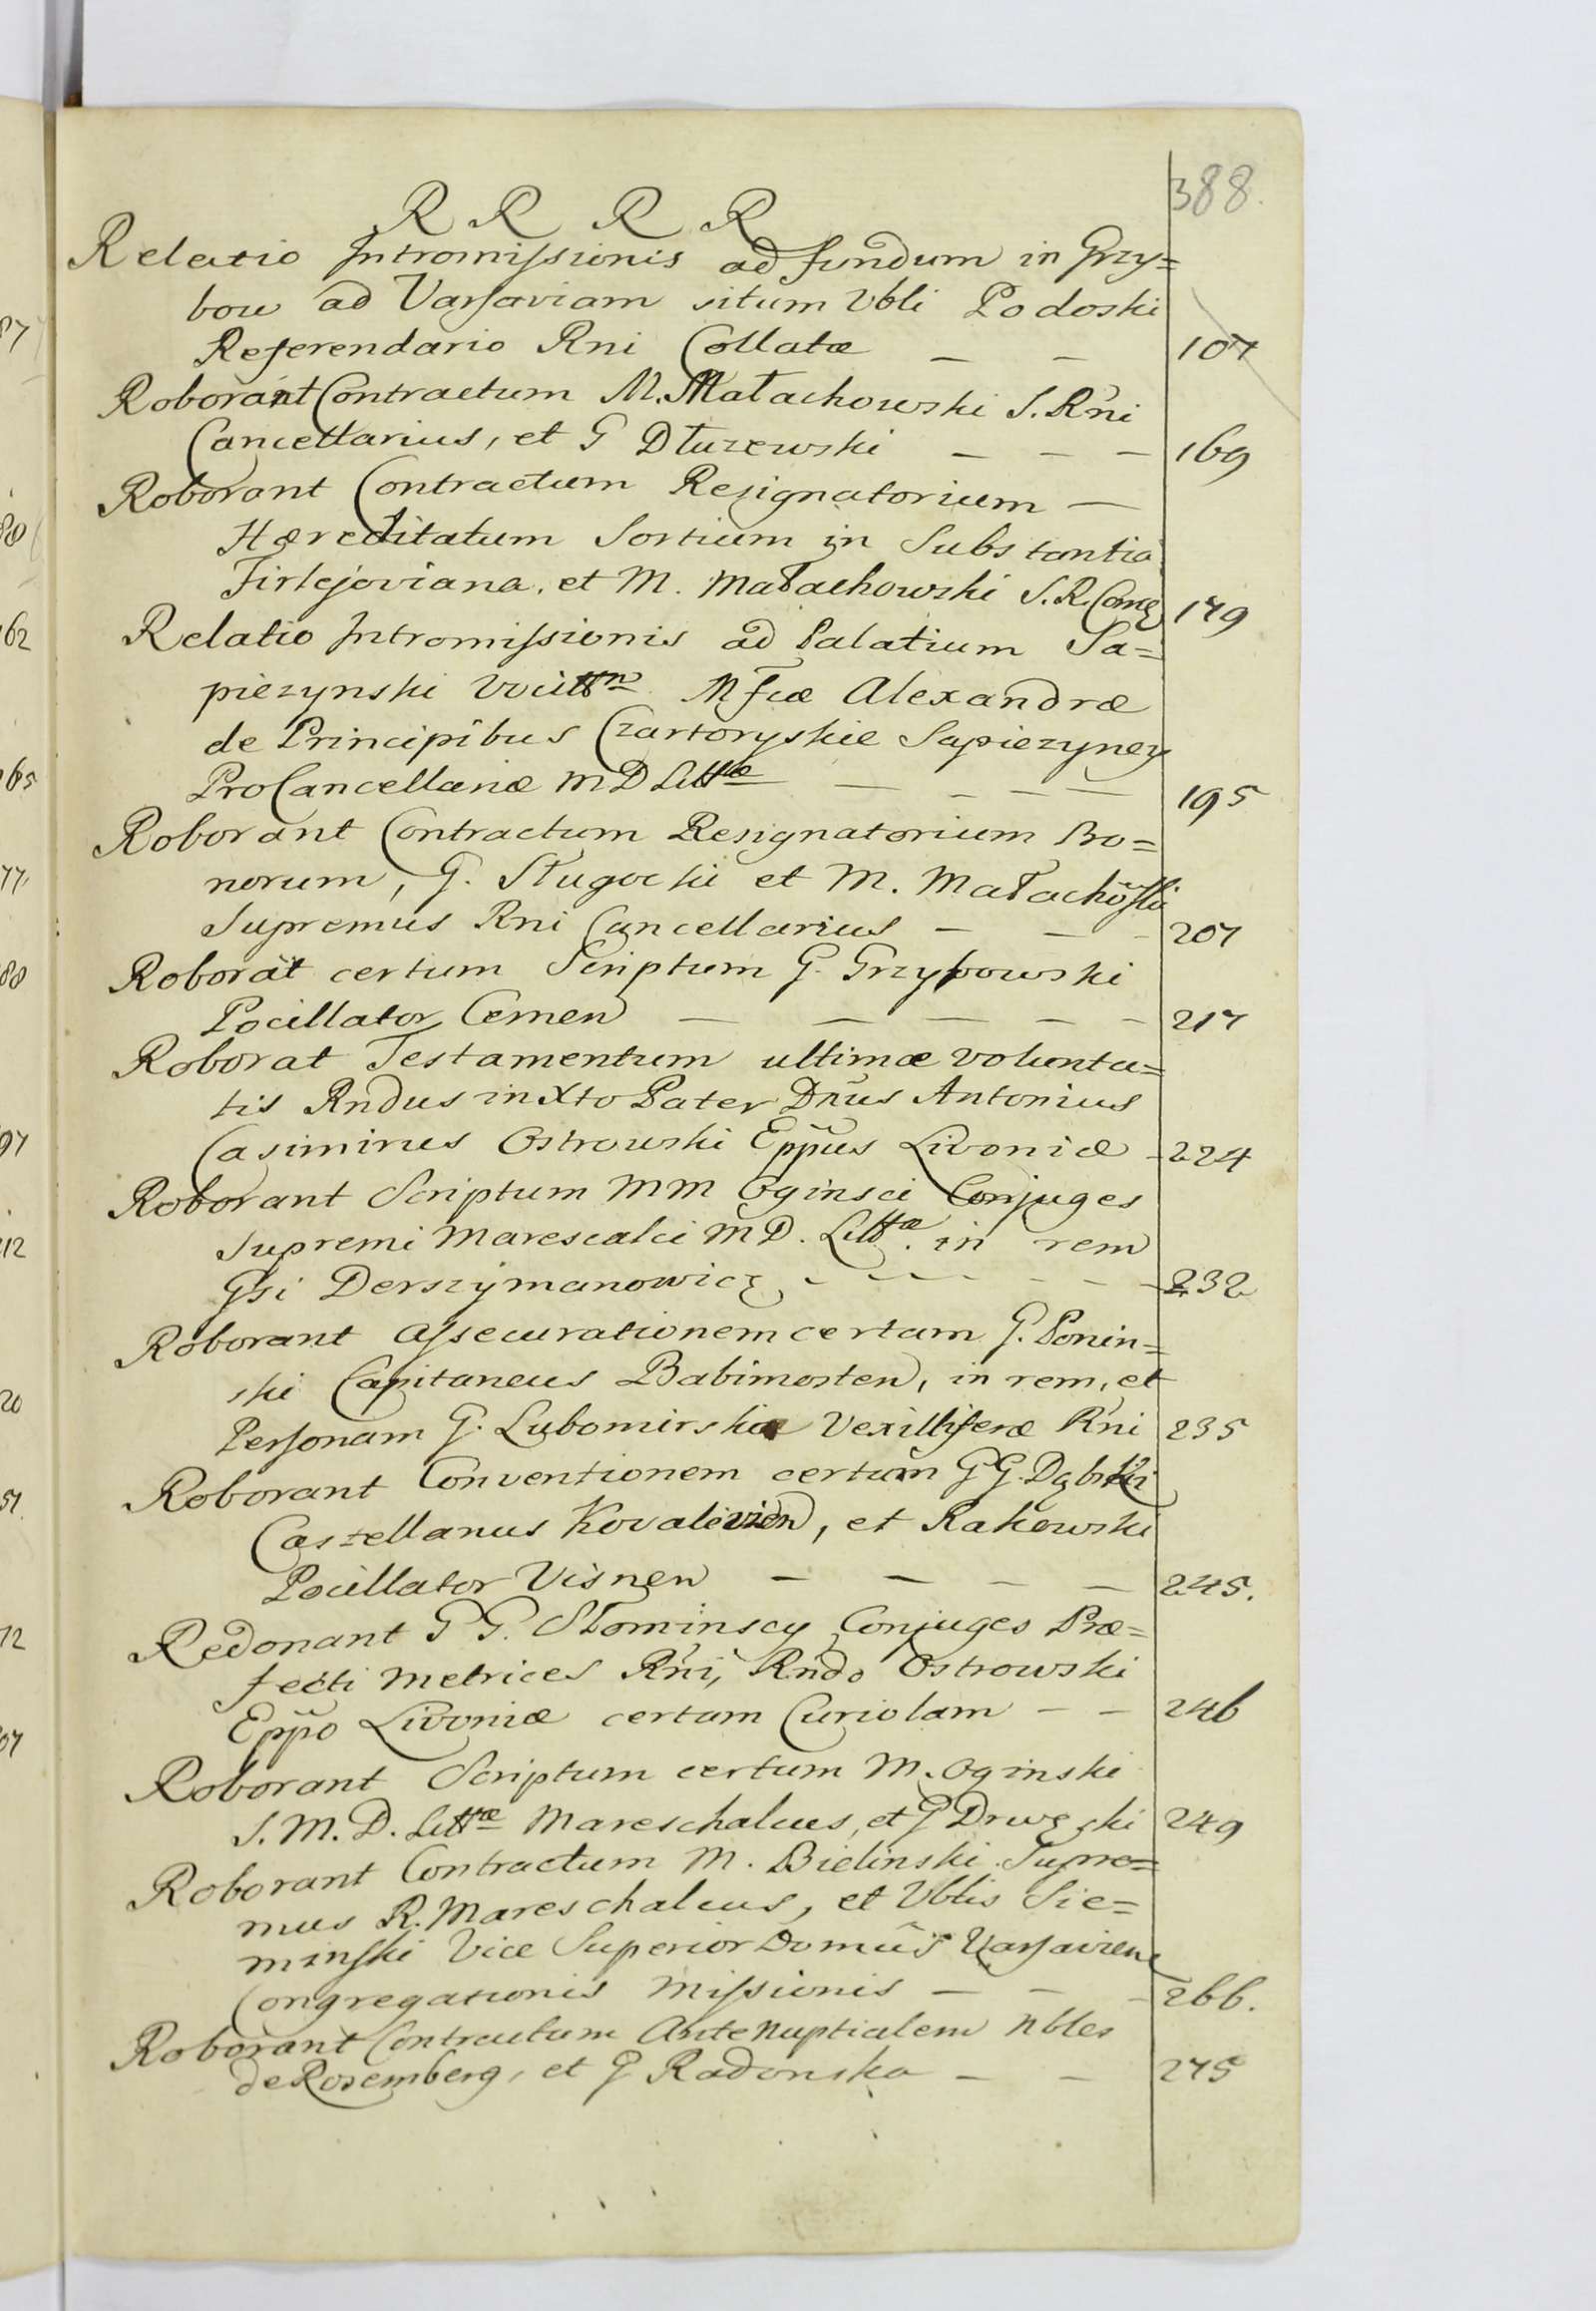 388.
R R R R
Relatio Intromissionis ad fundum in Grzy=
bow ad Varsaviam situm Vbli Podoski
Referendario Rni Collatæ — — 107
Roborant Contractum M. Małachowski S. Rni
Cancellarius, et G Dłuzewski — — — 169
Roborant Contractum Resignatorium —
Hæreditatum Sortium in Substantia
Firlejoviana, et M. Małachowski S. R. Canc 179
Relatio Intromissionis ad Palatium Sa=
piezynski Mfcæ Alexandræ
de Principibus Czartoryskie Sapiezyney
ProCancellariæ M D Littæ — — — — 195
Roborant Contractum Resignatorium Bo=
norum, G. Sługocki et M. Małachôski
Supremus Rni Cancellarius — — - 207
Roborat certum Scriptum G. Grzybowski
Pocillator Cernen — — — — - 217
Roborat Testamentum ultimæ volunta=
tis Rndus in Xto Pater Dnus Antonius
Casimirus Ostrowski Eppus Livoniæ - 224
Roborant Scriptum MM Oginsci Conjuges
Supremi Marescalci M D. Littæ. in rem
Gsi Derszymanowicz - - - - - - - 232
Roborant Assecurationem certam G. Ponin=
ski Capitaneus Babimosten, in rem, et
Personam G. Lubomirskia Vexilliferæ Rni 235
Roborant Conventionem certam GG. Dąbski
Castellanus Kovalevien, et Rakowski
Pocillator Visnen — — — — 245.
Redonant G G. Słominscy Conjuges Præ=
fecti Metrices Rni, Rndo Ostrowski
Eppo Livoniæ certam Curiolam — — 246
Roborant Scriptum certum M. Oginski
S. M. D. Littæ Mareschalcus, et G Drwęski 249
Roborant Contractum M. Bielinski Supre=
mus R. Mareschalcus, et Vblis Sie=
minski Vice Superior Domûs Varsavien
Congregationis Missionis — — - 266.
Roborant Contractum AnteNuptialem Nbles
de Rosemberg, et G Radonska — — 275